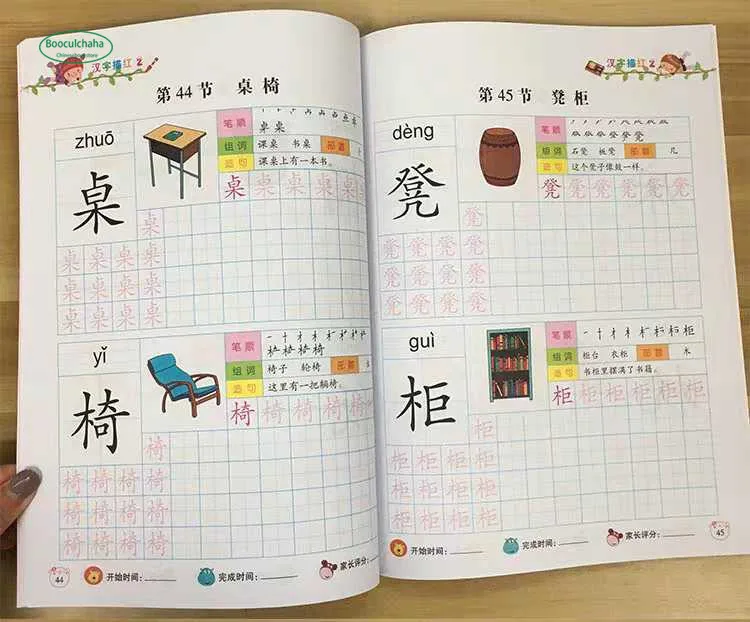 Booculchaha
汉字描红 2
第44节 桌 椅
zhuō
桌
笔顺
桌 桌
组词 课桌 书桌 部首
造句 课桌上有一本书。
桌 桌 桌 桌 桌 桌
桌
桌 桌 桌 桌
桌 桌 桌 桌
桌 桌 桌 桌
yǐ
椅
笔顺 一 十 才 木
椅
组词 椅子 轮椅 部首 木
造句 这里有一把躺椅。
椅 椅 椅 椅 椅 椅
椅
椅 椅 椅 椅
椅 椅 椅 椅
椅 椅 椅 椅
44 开始时间: 完成时间: 家长评分:
汉字描红 2
第45节 凳 柜
dèng
凳
笔顺
凳
组词 石凳 板凳 部首 几
造句 这个凳子像鼓一样。
凳 凳 凳 凳 凳 凳
凳
凳 凳 凳 凳
凳 凳 凳 凳
凳 凳 凳 凳
guì
柜
笔顺 一 十 才 木 柜
组词 柜台 衣柜 部首 木
造句 书柜里摆满了书籍。
柜 柜 柜 柜 柜 柜
柜
柜 柜 柜 柜
柜 柜 柜 柜
柜 柜 柜 柜
开始时间: 完成时间: 家长评分: 45